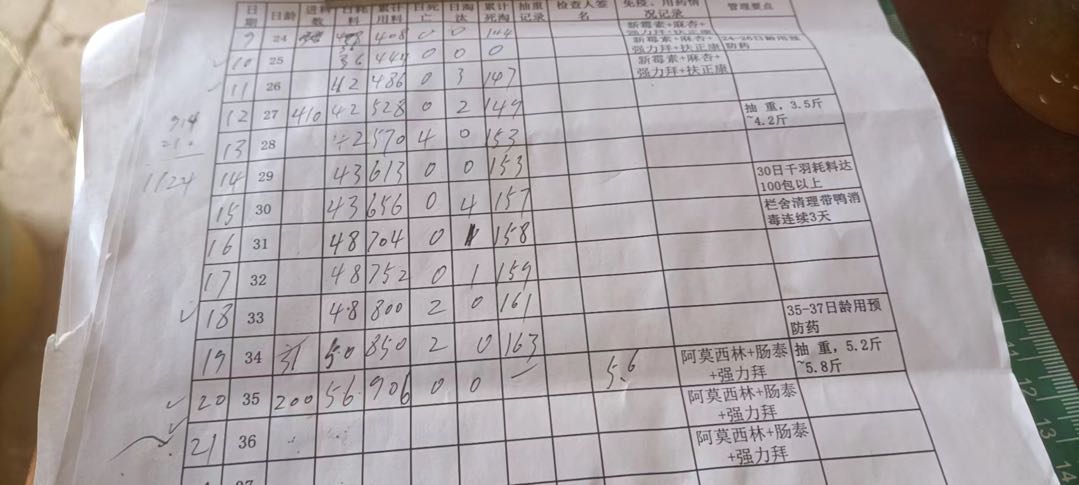 日期 日龄 进料数 日耗料 累计用料 日死亡 日淘汰 累计死淘 抽重记录 检查人签名 免疫、用药情况记录 管理要点
9 24 408 0 0 144 新霉素+麻杏+强力拜+扶正康
10 25 36 444 0 0 0 新霉素+麻杏+强力拜+扶正康 24-26日龄用预防药
11 26 42 486 0 3 147 新霉素+麻杏+强力拜+扶正康
12 27 410 42 528 0 2 149 抽 重，3.5斤~4.2斤
914
210
1124
13 28 42 570 4 0 153
14 29 43 613 0 0 153 30日千羽耗料达100包以上
15 30 43 656 0 4 157 栏舍清理带鸭消毒连续3天
16 31 48 704 0 1 158
17 32 48 752 0 1 159
18 33 48 800 2 0 161 35-37日龄用预防药
19 34 50 850 2 0 163 5.6 阿莫西林+肠泰+强力拜 抽 重，5.2斤~5.8斤
20 35 200 56 906 0 0 阿莫西林+肠泰+强力拜
21 36 阿莫西林+肠泰+强力拜
37
11 12 13 14